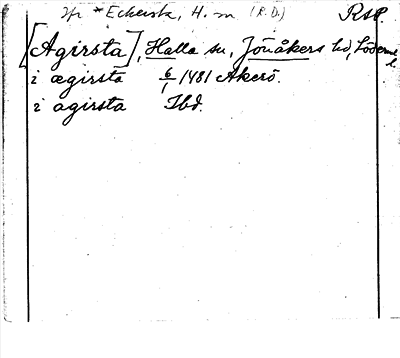 *Eckersta, H. sn (R.D.) RSP.
[Agirsta], Halla sn, Jönåkers hd, Söderm. l.
i ægirsta 6/1 1481 Åkerö.
i agirsta Ibd.